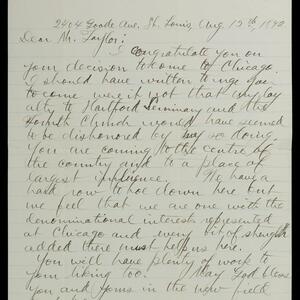 2404 Goode Ave. St. Louis, Aug. 12th, 1892
Dear Mr. Taylor:
I Congratulate you on
your decision to come to Chicago.
I should have written to urge you to
come were it not that my loy
alty to Hartford Seminary and the
Fourth Church would have seemed
to be dishonored by my so doing.
You are coming to the centre of
the country and to a place of
largest influence. We have a
hard row to hoe down here but
we feel that we are one with the
denominational interest represented
at Chicago and every bit of strength
added there must help us here.
You will have plenty of work to
your liking too. May God bless
you and yours in the new field